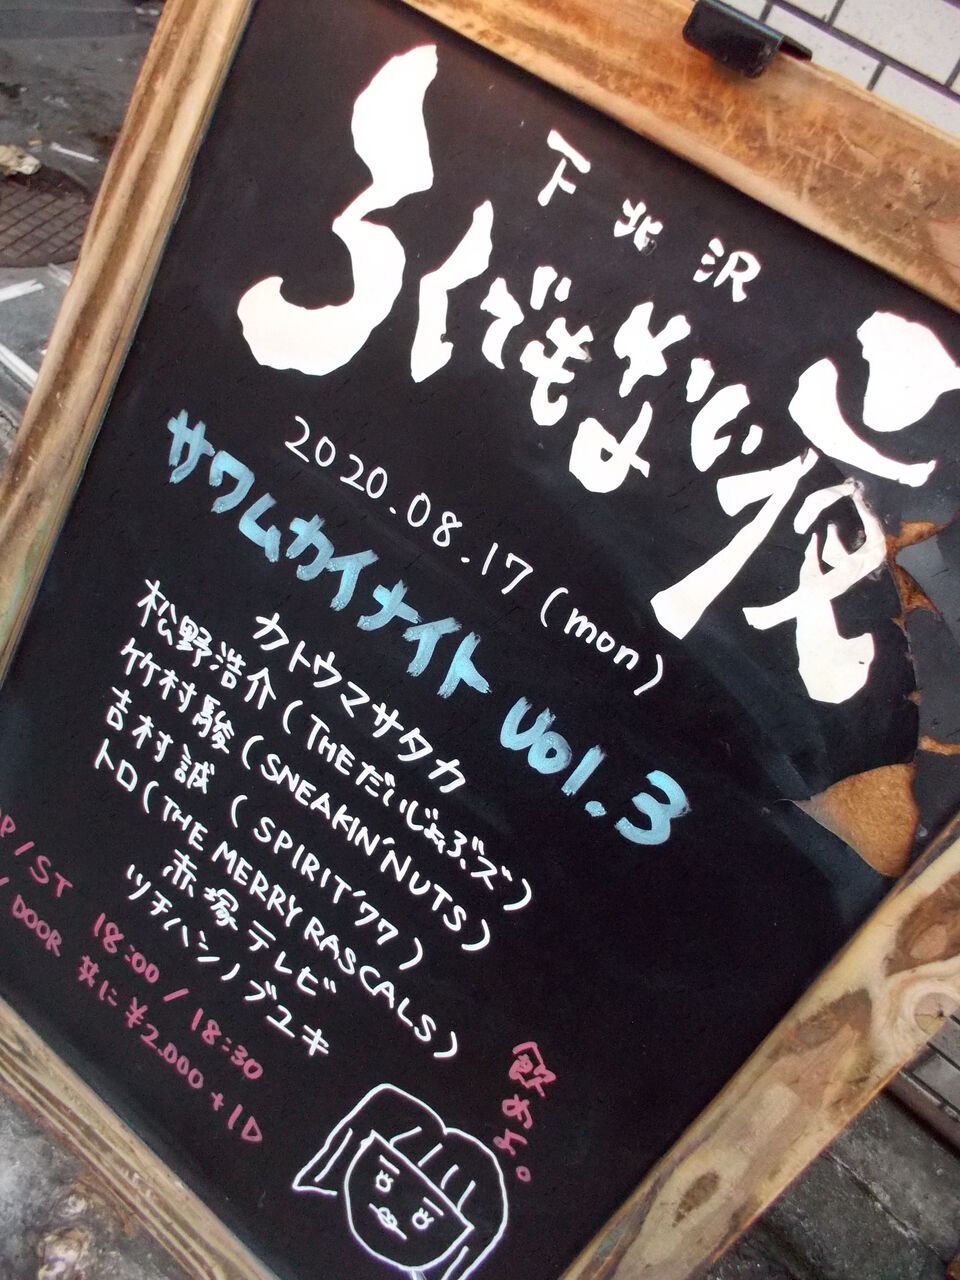 下北沢
ろくでもない夜
2020.08.17 (mon)
サワムカイナイト vol.3
カトウマサタカ
松野浩介 (THEだいじょぶズ)
竹村駿 (SNEAKIN'NUTS)
吉村誠 (SPIRIT'77)
トロ (THE MERRY RASCALS)
赤塚テレビ
ツチハシノブユキ
/ST 18:00 / 18:30
/ DOOR 共に ¥2,000 + 1D
飲めよ。